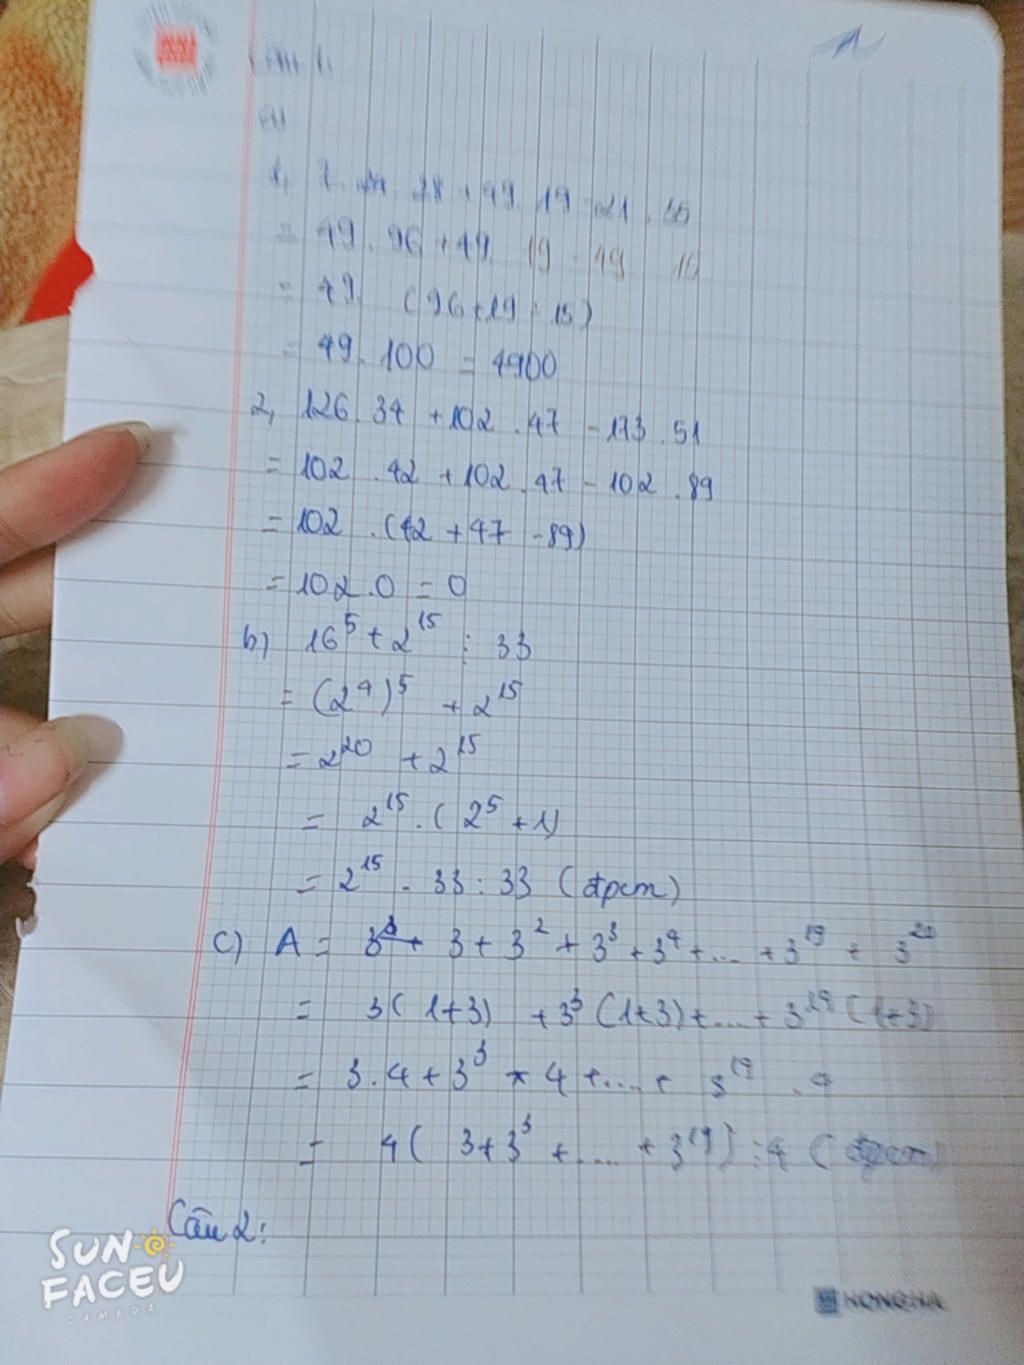 = 49 . 96 + 49 . 19 - 49
= 49 . (96 + 19 - 15)
= 49 . 100 = 4900
2, 126 . 34 + 102 . 47 - 173 . 51
= 102 . 42 + 102 . 47 - 102 . 89
= 102 . (42 + 47 - 89)
= 102 . 0 = 0
b) 16⁵ + 2¹⁵ ⋮ 33
= (2⁴)⁵ + 2¹⁵
= 2²⁰ + 2¹⁵
= 2¹⁵ . (2⁵ + 1)
= 2¹⁵ . 33 ⋮ 33 (đpcm)
c) A = 3 + 3² + 3³ + 3⁴ + .... + 3¹⁹ + 3²⁰
= 3(1+3) + 3³(1+3) + .... + 3¹⁹(1+3)
= 3.4 + 3³ . 4 + .... + 3¹⁹ . 4
= 4(3 + 3³ + .... + 3¹⁹) ⋮ 4 (đpcm)
Câu 2:
SUN
FACEU
CAMERA
HONGHA